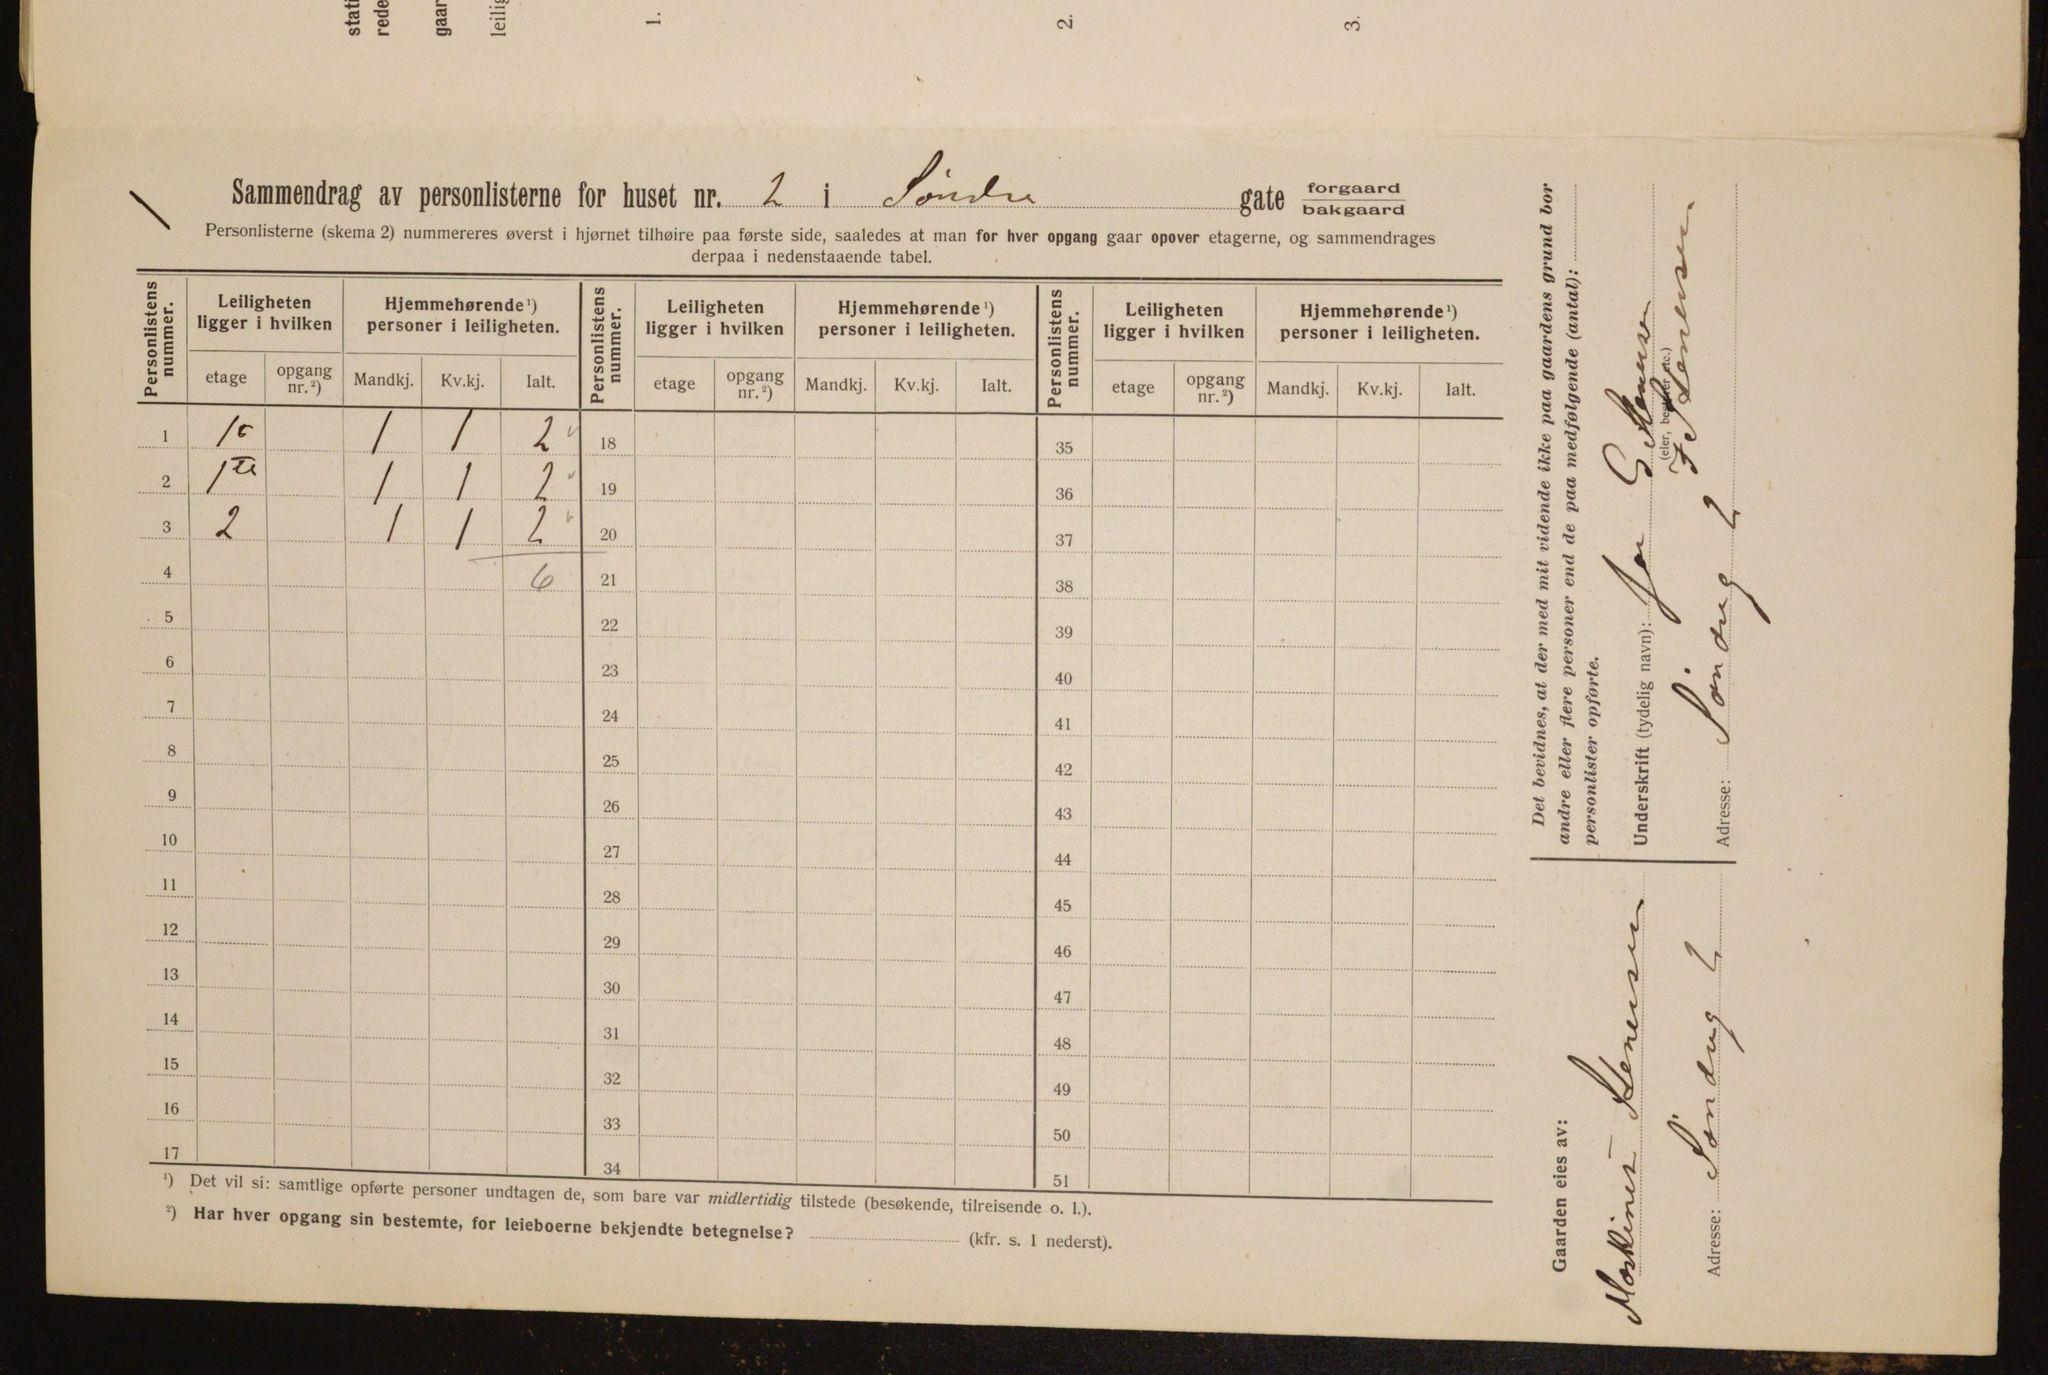 stati
rede
gaar
leilig
1.
2.
3.
Sammendrag av personlisterne for huset nr. 2 i Søndre gate forgaard
bakgaard
Personlisterne (skema 2) nummereres øverst i hjørnet tilhøire paa første side, saaledes at man for hver opgang gaar opover etagerne, og sammendrages
derpaa i nedenstaaende tabel.
Personlistens nummer. Leiligheten ligger i hvilken Hjemmehørende ¹) personer i leiligheten. Personlistens nummer. Leiligheten ligger i hvilken Hjemmehørende ¹) personer i leiligheten. Personlistens nummer. Leiligheten ligger i hvilken Hjemmehørende ¹) personer i leiligheten.
etage opgang nr. ²) Mandkj. Kv.kj. Ialt. etage opgang nr. ²) Mandkj. Kv.kj. Ialt. etage opgang nr. ²) Mandkj. Kv.kj. Ialt.
1 1 1 2 18 35
2 1 1 2 19 36
3 2 1 1 2 20 37
4 6 21 38
5 22 39
6 23 40
7 24 41
8 25 42
9 26 43
10 27 44
11 28 45
12 29 46
13 30 47
14 31 48
15 32 49
16 33 50
17 34 51
¹) Det vil si: samtlige opførte personer undtagen de, som bare var midlertidig tilstede (besøkende, tilreisende o. l.).
²) Har hver opgang sin bestemte, for leieboerne bekjendte betegnelse? (kfr. s. 1 nederst).
Det bevidnes, at der med mit vidende ikke paa gaardens grund bor
andre eller flere personer end de paa medfølgende (antal):
personlister opførte.
Underskrift (tydelig navn):
(eier, bestyrer etc.)
Adresse: Søndreg 2
Gaarden eies av:
Stenersen
Adresse: Søndreg 2